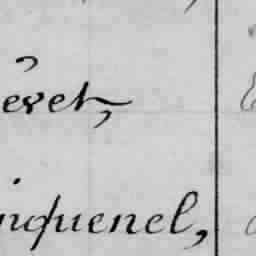 evet,
inquenel,